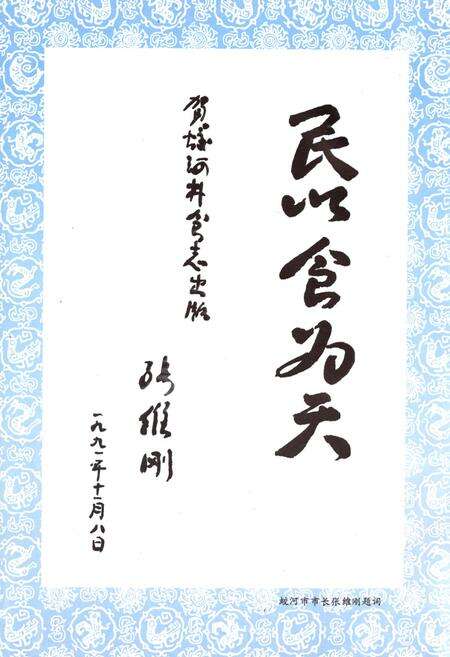 民以食为天
贺蛟河粮食志出版
张维刚
一九九一年十一月八日
蛟河市市长张维刚题词